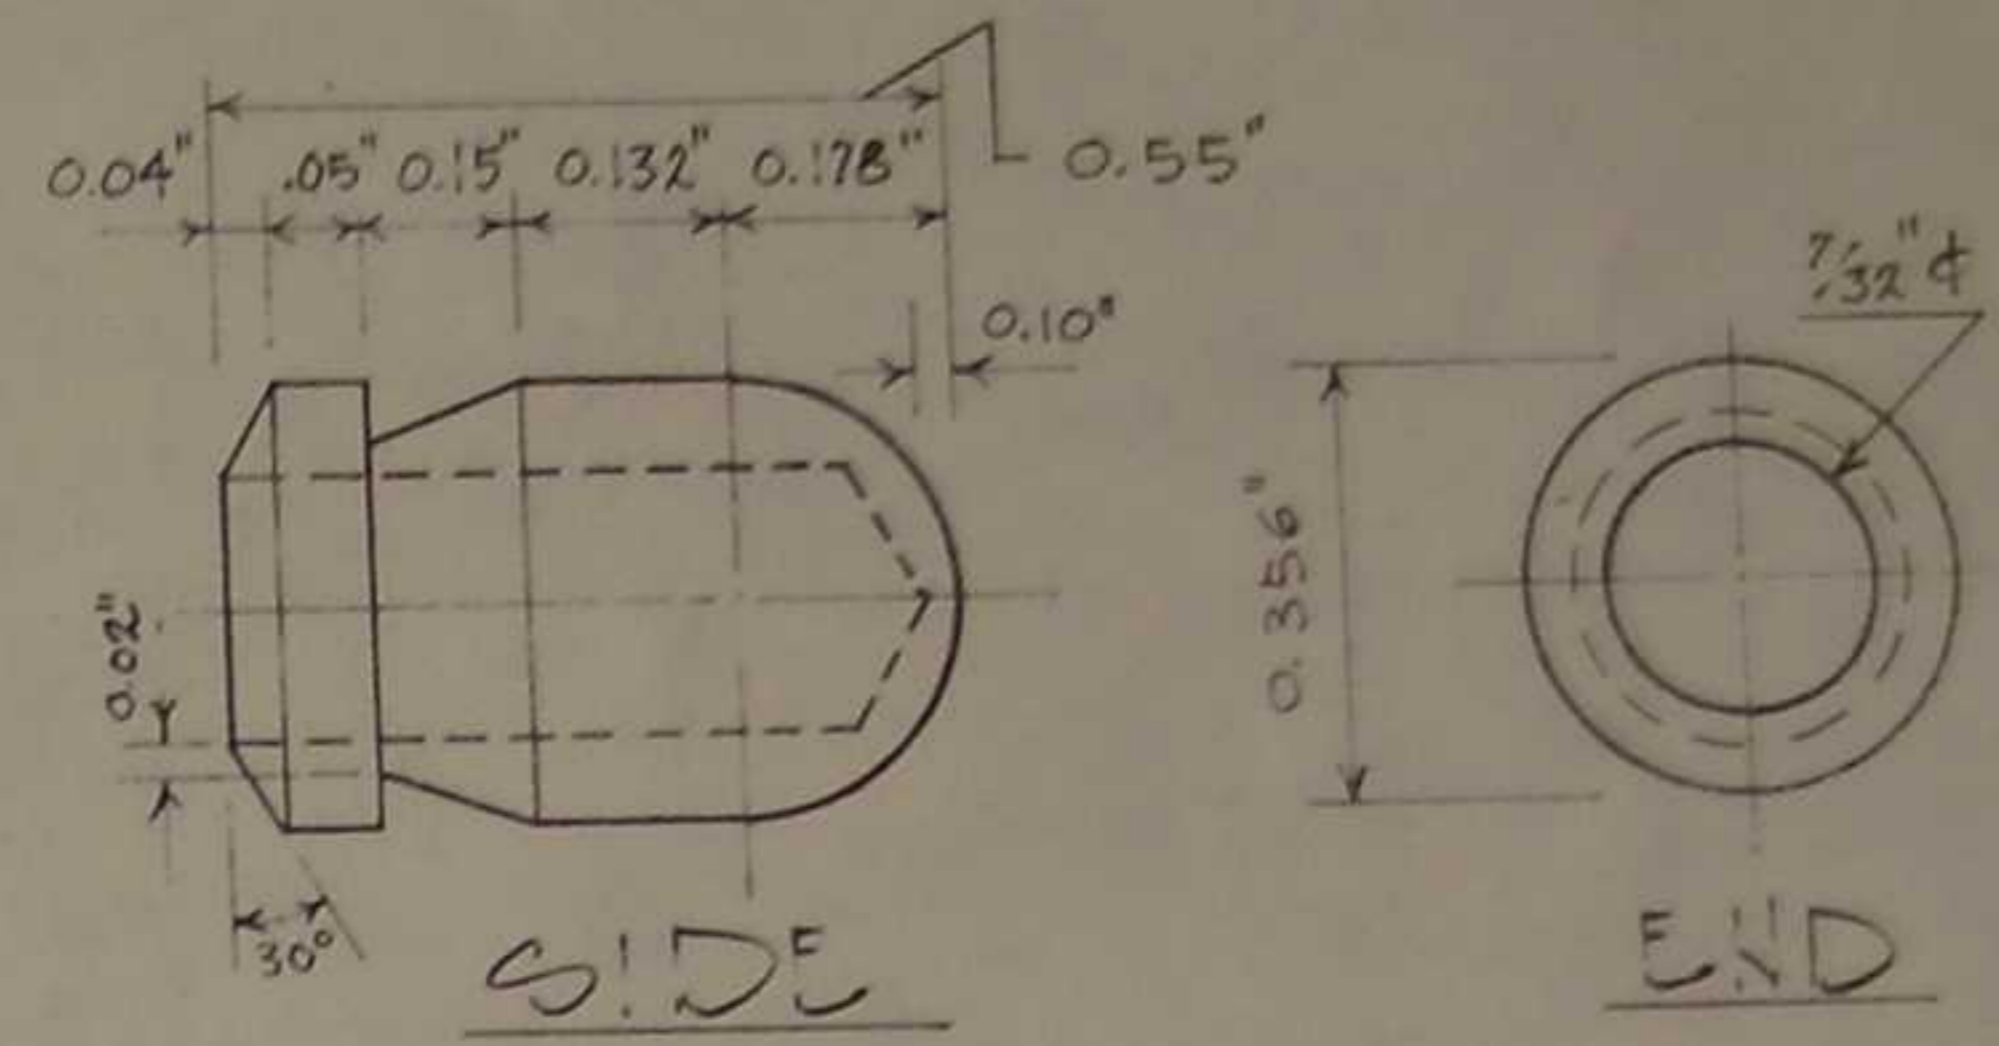 0.04" .05" 0.15" 0.132" 0.178" 0.55"
0.10"
7/32" ¢
0.356"
0.02"
30°
SIDE
END